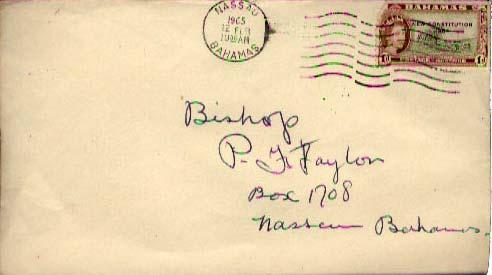 NASSAU
1965
12 FEB
BAHAMAS
BAHAMAS
NEW CONSTITUTION
1964
1d
1d
Bishop
P. F. Taylor
Box 1708
Nassau Bahamas.